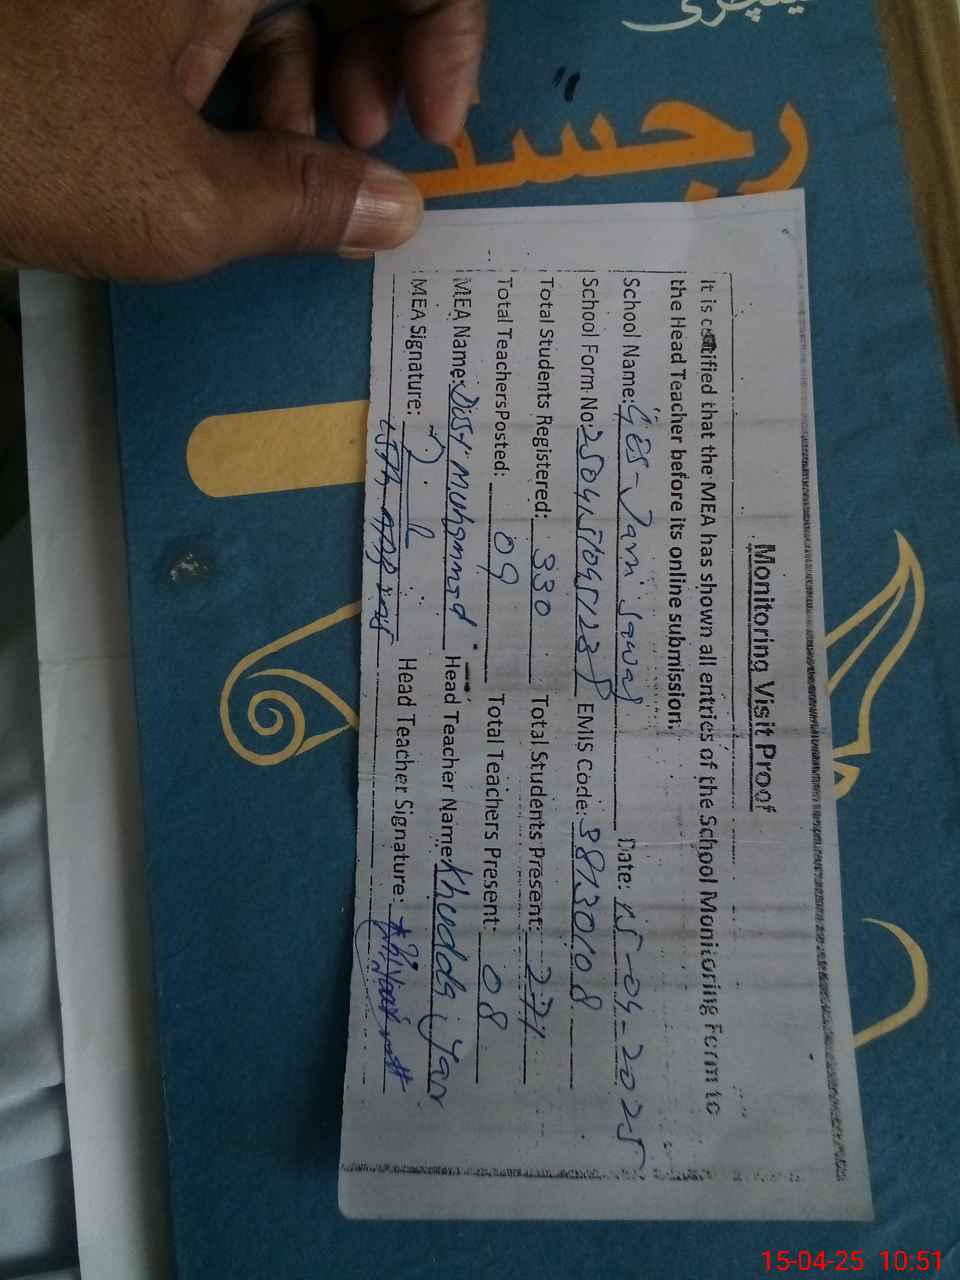 رجسٹر
Monitoring Visit Proof
It is certified that the MEA has shown all entries of the School Monitoring Form to
the Head Teacher before its online submission.
School Name: GES-Jam Sawai Date: 15-04-2025
School Form No: EMIS Code: 38130108
Total Students Registered: 330 Total Students Present: 271
Total TeachersPosted: 09 Total Teachers Present: 08
MEA Name: Dost Muhammad Head Teacher Name: Khudda Yar
MEA Signature: Head Teacher Signature:
15-04-25 10:51